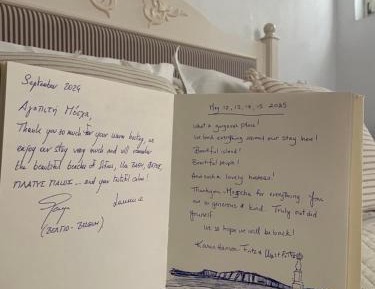 September 2024
Αγαπητή Μόσχα,
Thank you so much for your warm hosting, we
enjoy our stay very much and will remember
the beautiful beaches of
ΠΛΑΤΥΣ ΓΙΑΛΟΣ ... and your tasteful
(ΒΕΛΓΙΟ - BELGIUM)
May 12, 13, 14, 15 2025
What a gorgeous place!
We loved everything about our stay here!
Beautiful island!
Beautiful people!
And such a lovely hostess!
Thank you Moscha for everything. You
are so generous & kind. Truly
yourself
We so hope we will be back!
Karin